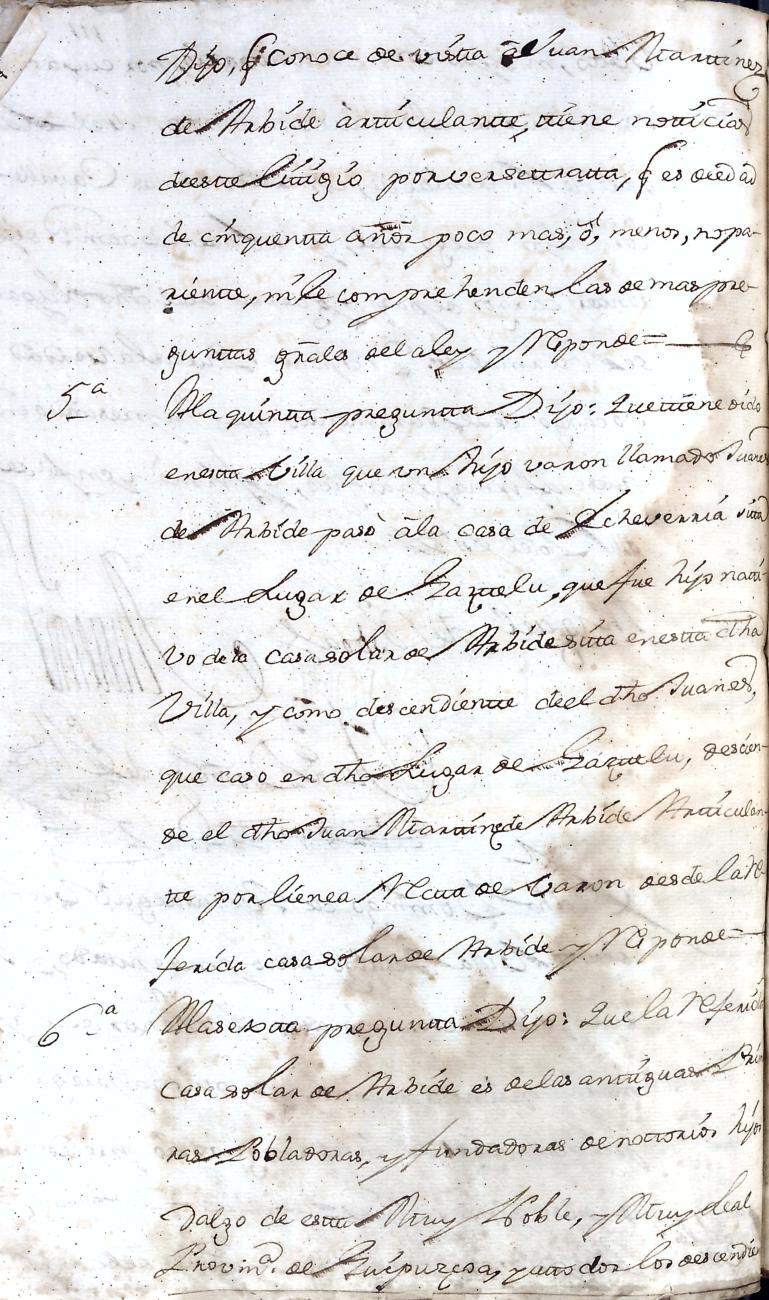 Dijo, q̃ conoce de vista â Juan Martinez
de Arbide articulante, tiene noticias
deste litigio por verse trata, q̃ es de edad
de cinquenta años poco mas, ô, menos, no pa-
riente, ni le comprehenden las demas pre-
guntas gñales de la ley y Responde=
5ª Ala quinta pregunta Dijo: Que tiene oido
en esta Villa que un hijo varon llamado Juanes
de Arbide pasò â la casa de Echeverria sita
en el Lugar de Gaztelu, que fue hijo nati-
vo de la casa solar de Arbide sita en esta dha
Villa, y como descendiente de el dho Juanes,
que caso en dho Lugar de Gaztelu, descien-
de el dho Juan Martinz de Arbide Articulan-
te por lienea Recta de Varon desde la re-
ferida casa solar de Arbide y Responde=
6ª Ala sexta pregunta Dijo: Que la referida
casa solar de Arbide es de las antiguas Prime
ras Pobladoras, y fundadoras de notorios hijos
dalgo de esta Muy Noble, y Muy Leal
Provinª. de Guipuzcoa, y a todos los descendien